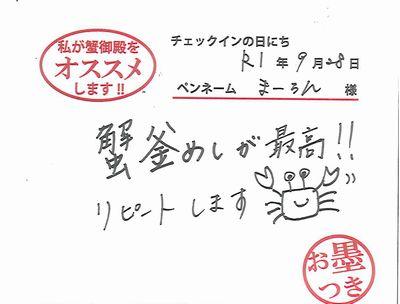 私が蟹御殿を
オススメ
します!!
チェックインの日にち
R1年9月28日
ペンネーム まーろん 様
蟹釜めしが最高!!
リピートします
お墨
つき